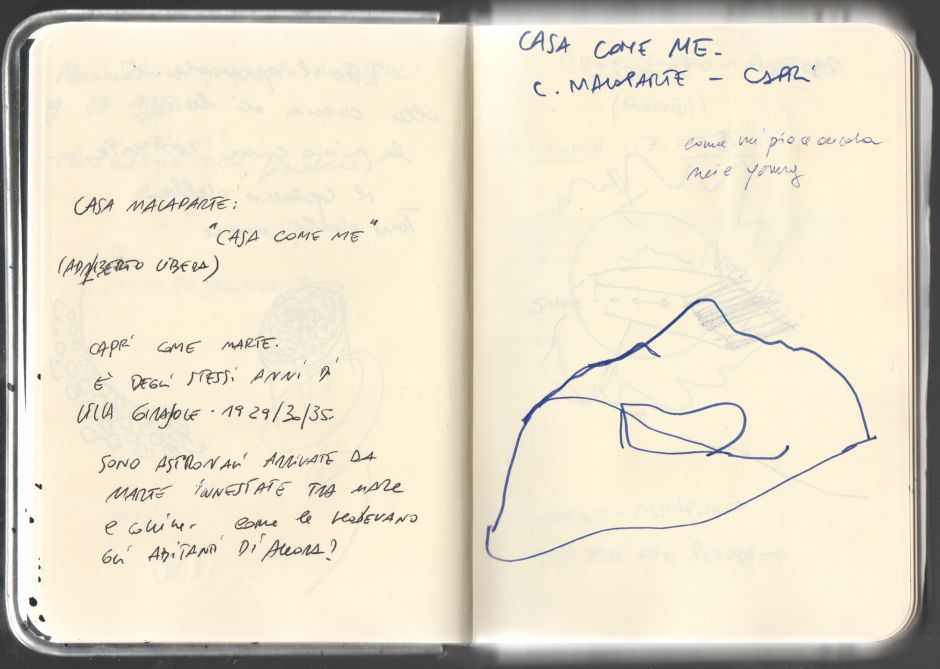 CASA MALAPARTE:
"CASA COME ME"
(ADALBERTO LIBERA)
CAPRI COME MARTE.
È DEGLI STESSI ANNI DI
VILLA GIRASOLE. 1929/30/35.
SONO ASTRONAVI ARRIVATE DA
MARTE INNESTATE TRA MARE
E COLLINE. COME LE VEDEVANO
GLI ABITANTI DI ALLORA?
CASA COME ME.
C. MALAPARTE - CAPRI
come mi piace
neie young